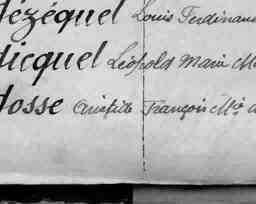 Jézéquel Louis Ferdinand
Jicquel Léopold Marie
Josse Aristide François Mie